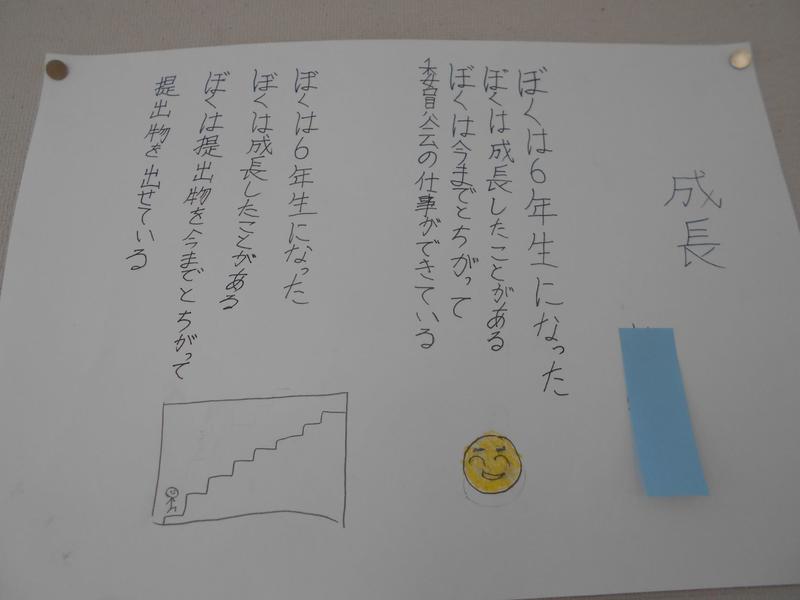 成長
ぼくは6年生になった
ぼくは成長したことがある
ぼくは今までとちがって
委員会の仕事ができている
ぼくは6年生になった
ぼくは成長したことがある
ぼくは提出物を今までとちがって
提出物を出せている